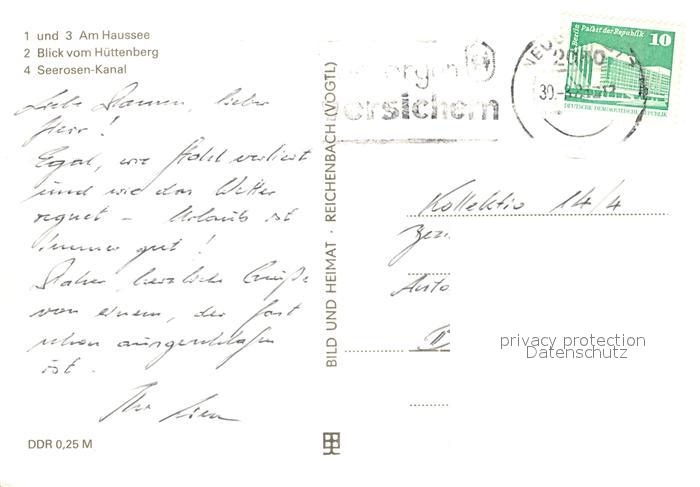 1 und 3 Am Haussee
2 Blick vom Hüttenberg
4 Seerosen-Kanal
Liebe Damen, lieber
Herr!
Egal, wie Stahl verliert
und wie das Wetter
regnet – Urlaub ist
immer gut!
Daher herzliche Grüße
von einem, der fast
schon ausgeschlafen
ist.
Ihr
DDR 0,25 M
BILD UND HEIMAT · REICHENBACH (VOGTL)
sichern
2080
30.-8.8
Berlin Palast der Republik
10
DEUTSCHE DEMOKRATISCHE REPUBLIK
Kollektiv 14/4
Zen
Auto
privacy protection
Datenschutz